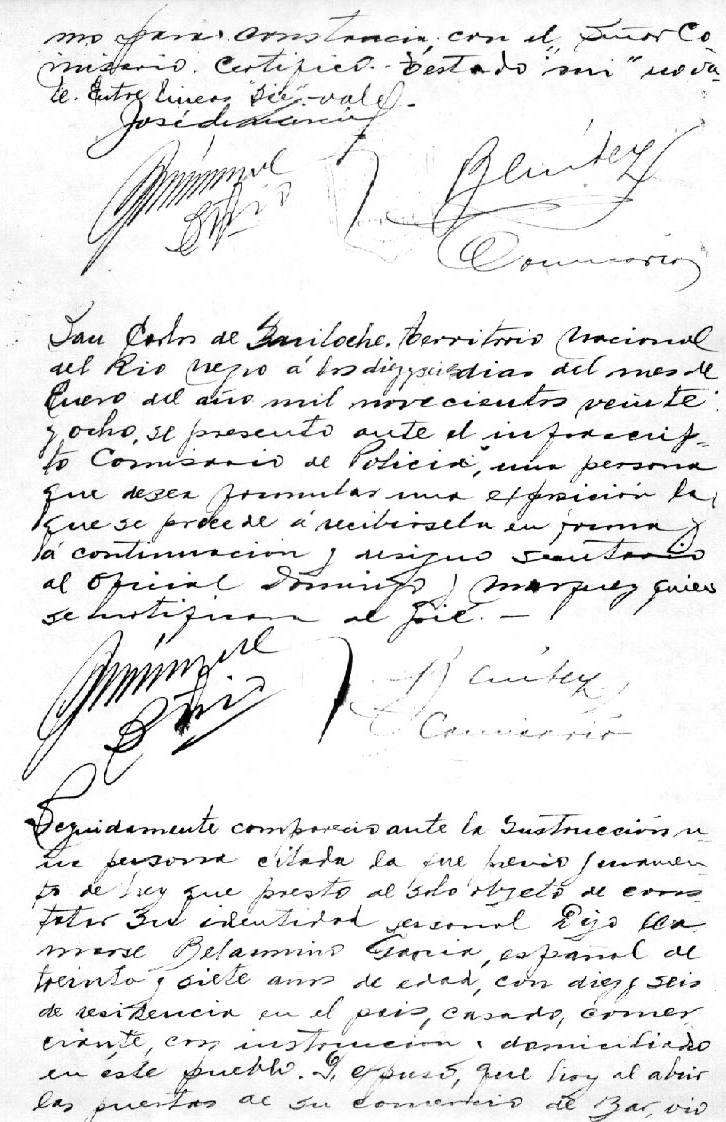 mo para constancia con el, Señor Co
misario. Certifico. Testado "mi" no va-
le. Entre lineas "Sie" vale.
José de García
Benitez
Comisario
San Carlos de Bariloche, territorio Nacional
del Rio Negro á los diez y seis dias del mes de
Enero del año mil novecientos veinte
y ocho, se presentó ante el infrascrip-
to Comisario de Policia, una persona
que desea formular una exposición la,
que se procede á recibirsela en forma y
á continuación y designo secretario
al Oficial Domingo J Marquez quien
se notificara al pié. —
Benitez
Comisario
Seguidamente compareció ante la Instrucción u-
na persona citada la que previo juramen-
to de ley que prestó al solo objeto de cons
tatar su identidad personal Dijo lla
marse Belarmino Garcia, español de
treinta y siete años de edad, con diez y seis
de residencia en el pais, casado, comer
ciante, con instrucción y domiciliado
en éste pueblo. Y expuso, que hoy al abrir
las puertas de su comercio de Bar, vio